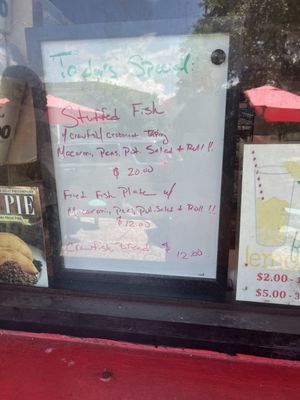 Today's Special:
Stuffed Fish
w/ crawfish/crabmeat
Macaroni, Peas, Pot. Salad & Roll!!
$20.00
Fried Fish Plate w/
Macaroni, Peas, Pot. Salad & Roll!!
$12.00
Crawfish Bread $
12.00
PIE
$2.00
$5.00